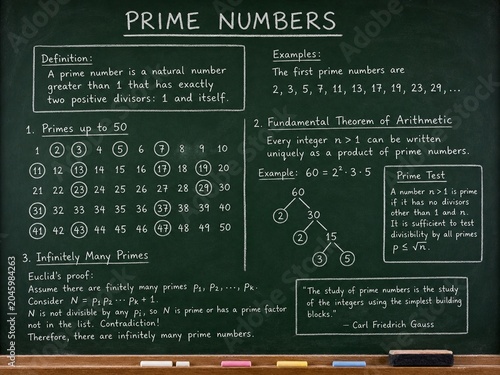 PRIME NUMBERS
Definition:
A prime number is a natural number
greater than 1 that has exactly
two positive divisors: 1 and itself.
Examples:
The first prime numbers are
2, 3, 5, 7, 11, 13, 17, 19, 23, 29, ...
1. Primes up to 50
1 2 3 4 5 6 7 8 9 10
11 12 13 14 15 16 17 18 19 20
21 22 23 24 25 26 27 28 29 30
31 32 33 34 35 36 37 38 39 40
41 42 43 44 45 46 47 48 49 50
2. Fundamental Theorem of Arithmetic
Every integer n > 1 can be written
uniquely as a product of prime numbers.
Example: 60 = 2² · 3 · 5
60
2 30
2 15
3 5
Prime Test
A number n > 1 is prime
if it has no divisors
other than 1 and n.
It is sufficient to test
divisibility by all primes
p ≤ √n.
3. Infinitely Many Primes
Euclid's proof:
Assume there are finitely many primes p₁, p₂, ..., pₖ.
Consider N = p₁p₂ ··· pₖ + 1.
N is not divisible by any pᵢ, so N is prime or has a prime factor
not in the list. Contradiction!
Therefore, there are infinitely many prime numbers.
"The study of prime numbers is the study
of the integers using the simplest building
blocks."
— Carl Friedrich Gauss
Adobe Stock | #2045984263